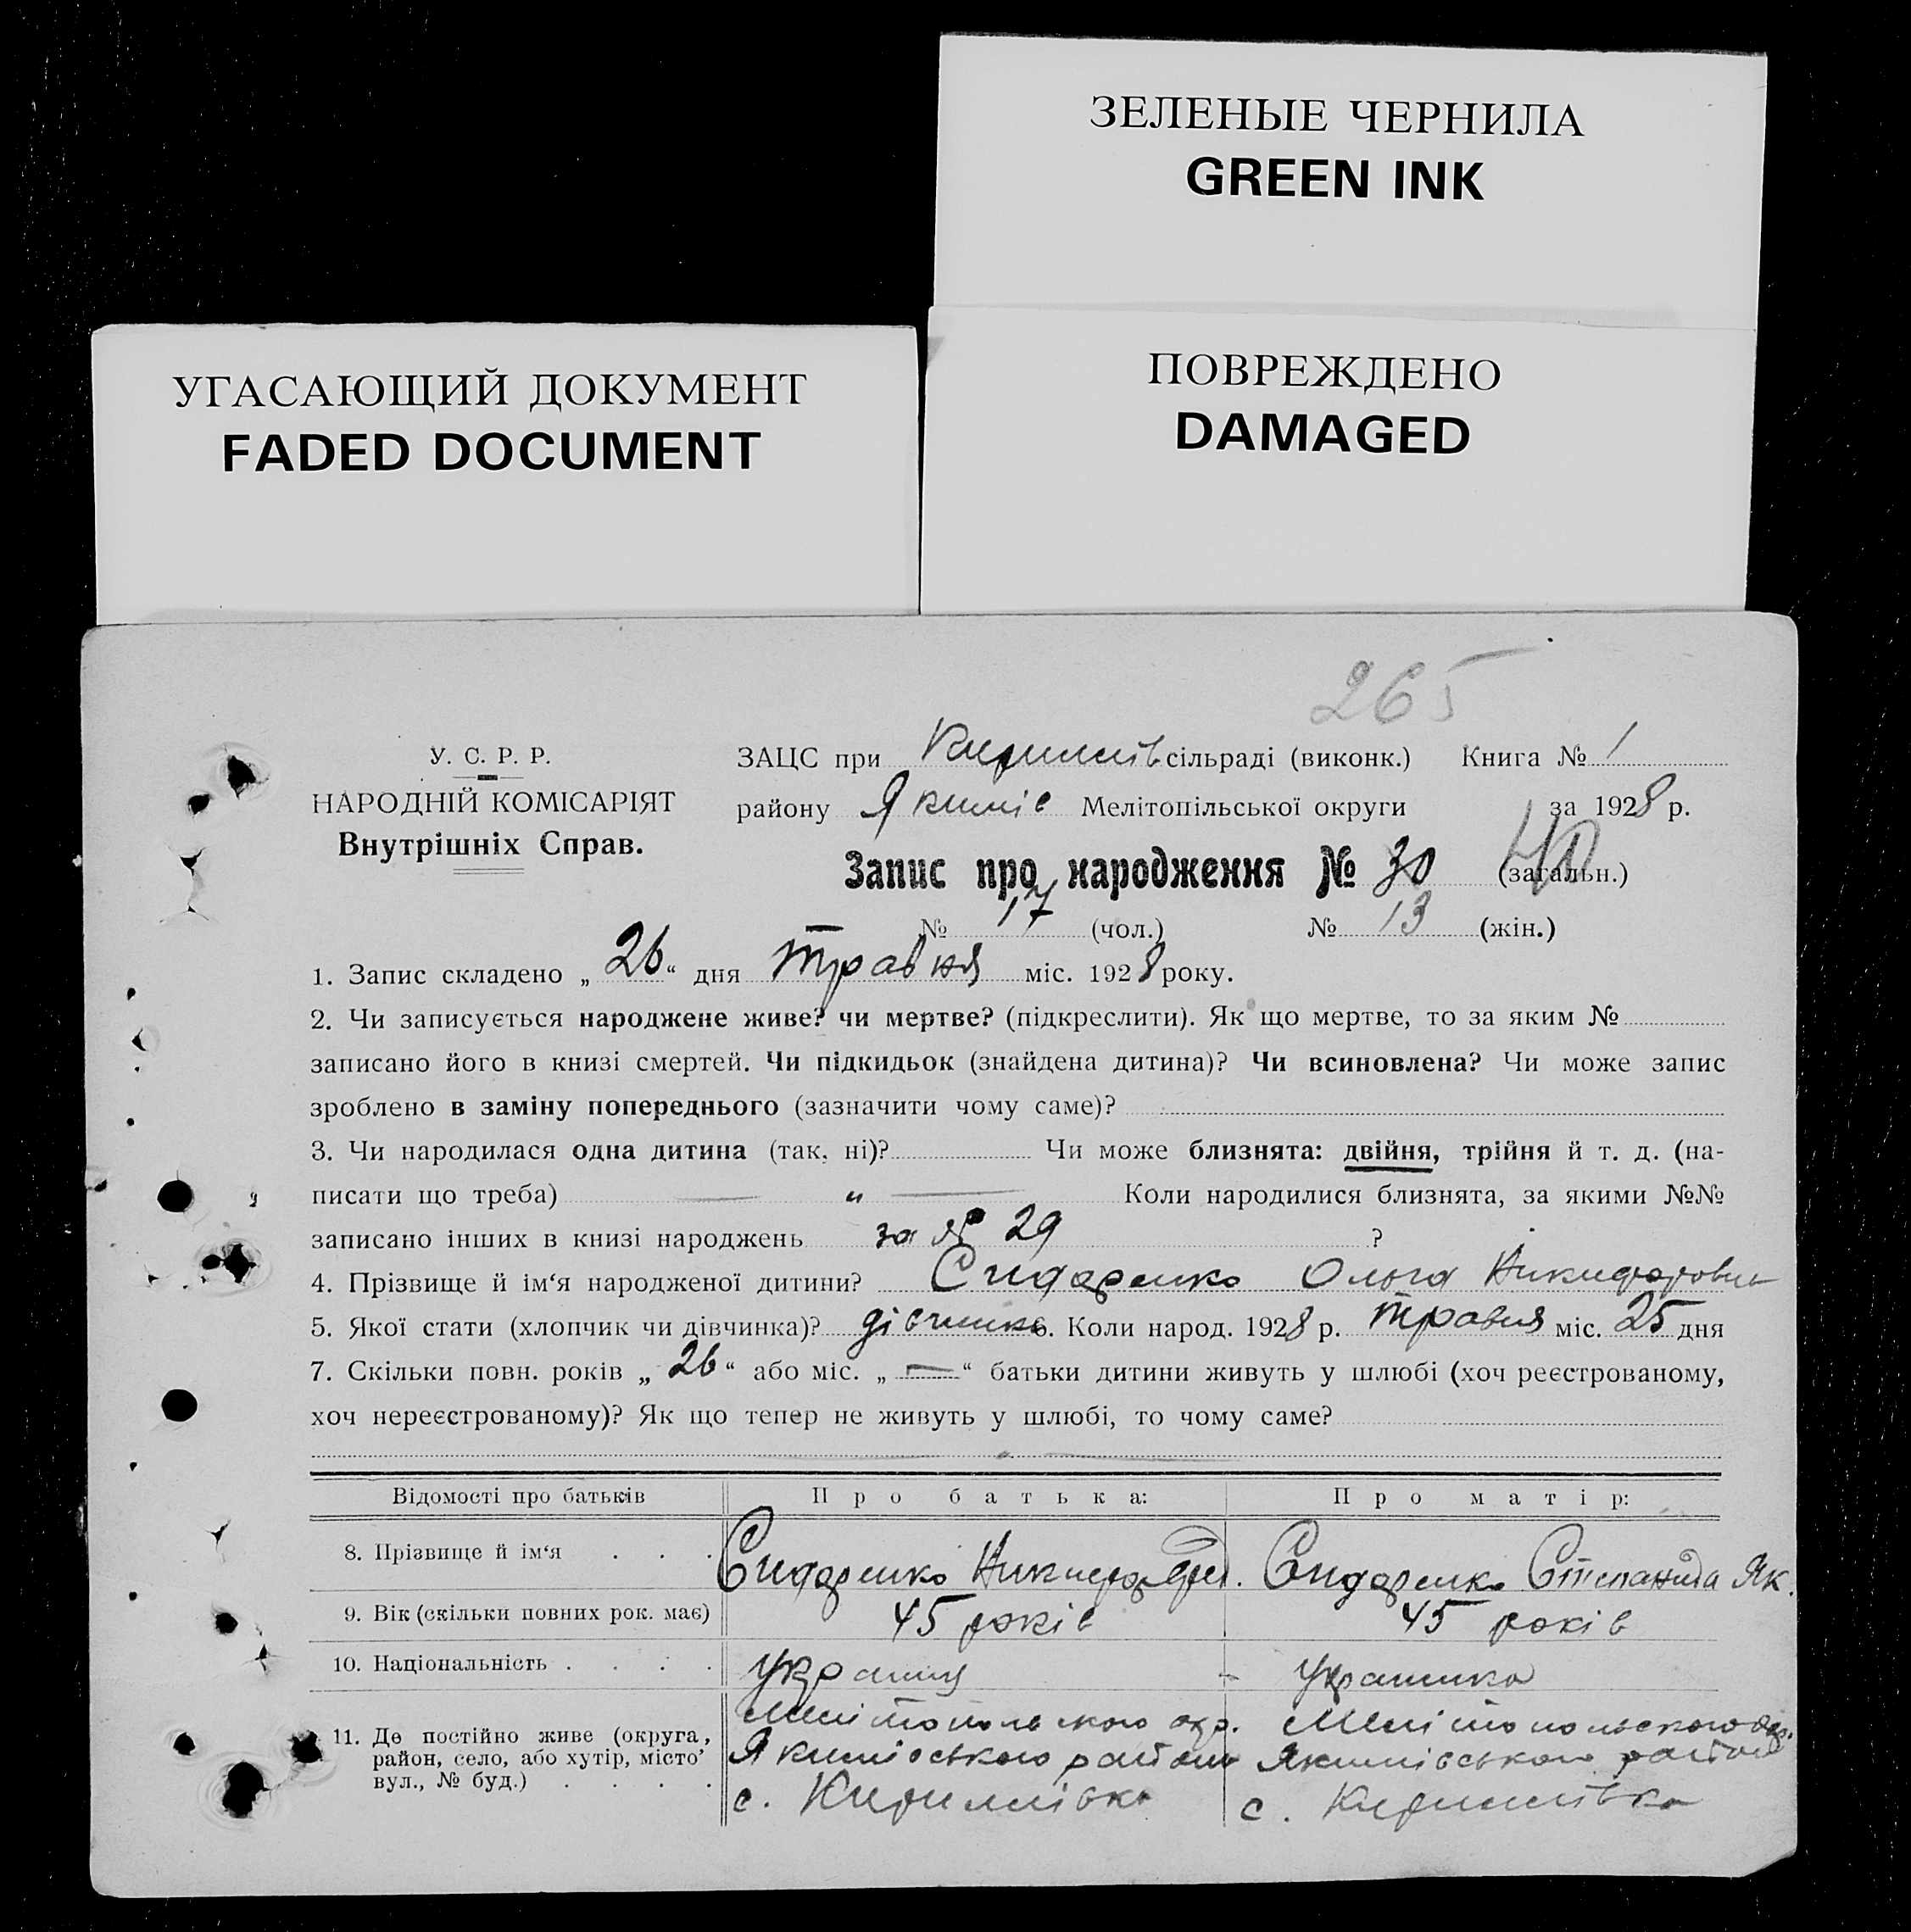 ЗЕЛЕНЫЕ ЧЕРНИЛА
GREEN INK
УГАСАЮЩИЙ ДОКУМЕНТ
FADED DOCUMENT
ПОВРЕЖДЕНО
DAMAGED
265
У. С. Р. Р.
НАРОДНІЙ КОМІСАРІЯТ
Внутрішніх Справ.
ЗАЦС при Кирилів сільраді (виконк.) Книга № 1
району Якимів Мелітопільської округи за 1928 р.
Запис про народження № 30 (загальн.)
№ 17 (чол.) № 13 (жін.)
1. Запис складено „ 26 “ дня травня міс. 1928 року.
2. Чи записується народжене живе? чи мертве? (підкреслити). Як що мертве, то за яким №
записано його в книзі смертей. Чи підкидьок (знайдена дитина)? Чи всиновлена? Чи може запис
зроблено в заміну попереднього (зазначити чому саме)?
3. Чи народилася одна дитина (так, ні)? Чи може близнята: двійня, трійня й т. д. (на-
писати що треба) — „ — Коли народилися близнята, за якими №№
записано інших в книзі народжень за № 29 ?
4. Прізвище й ім‘я народженої дитини? Сидоренко Ольга
5. Якої стати (хлопчик чи дівчинка)? дівчинка 6. Коли народ. 1928 р. травня міс. 25 дня
7. Скільки повн. років „ 26 “ або міс. „ — “ батьки дитини живуть у шлюбі (хоч реєстрованому,
хоч нереєстрованому)? Як що тепер не живуть у шлюбі, то чому саме?
Відомості про батьків Про батька: Про матір:
8. Прізвище й ім‘я . . . Сидоренко Никифор Сидоренко Степанида Як.
9. Вік (скільки повних рок. має) 45 років 45 років
10. Національність . . . . україн українка
11. Де постійно живе (округа, район, село, або хутір, місто’ вул., № буд.) . . . .
Мелітопольського окр. Мелітопольского окр.
Якимівського району Якимівського району
с. Кирилівка с. Кирилівка